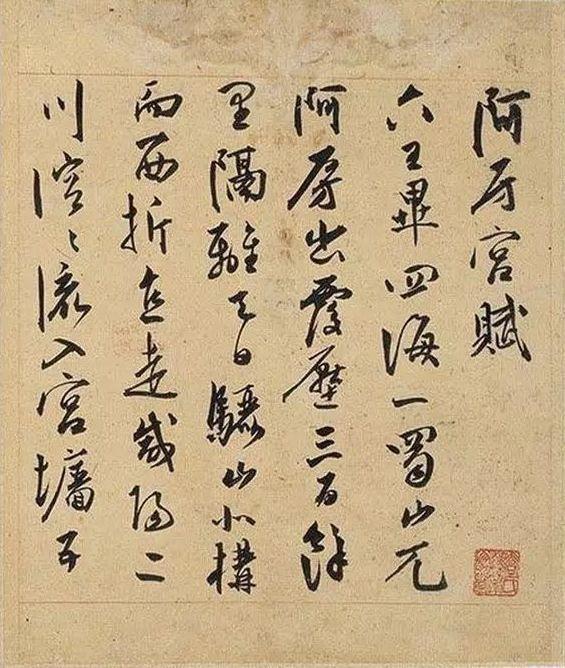 阿房宮賦
六王畢四海一蜀山兀
阿房出覆壓三百餘
里隔離天日驪山北構
而西折直走咸陽二
川溶〻流入宮墻五